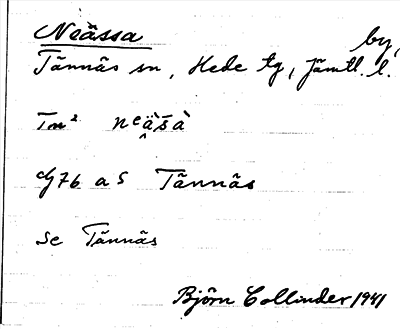 Neässa by,
Tännäs sn, Hede tg, Jämtl. l.
Tm²
G76 a S Tännäs
se Tännäs
Björn Collinder 1941